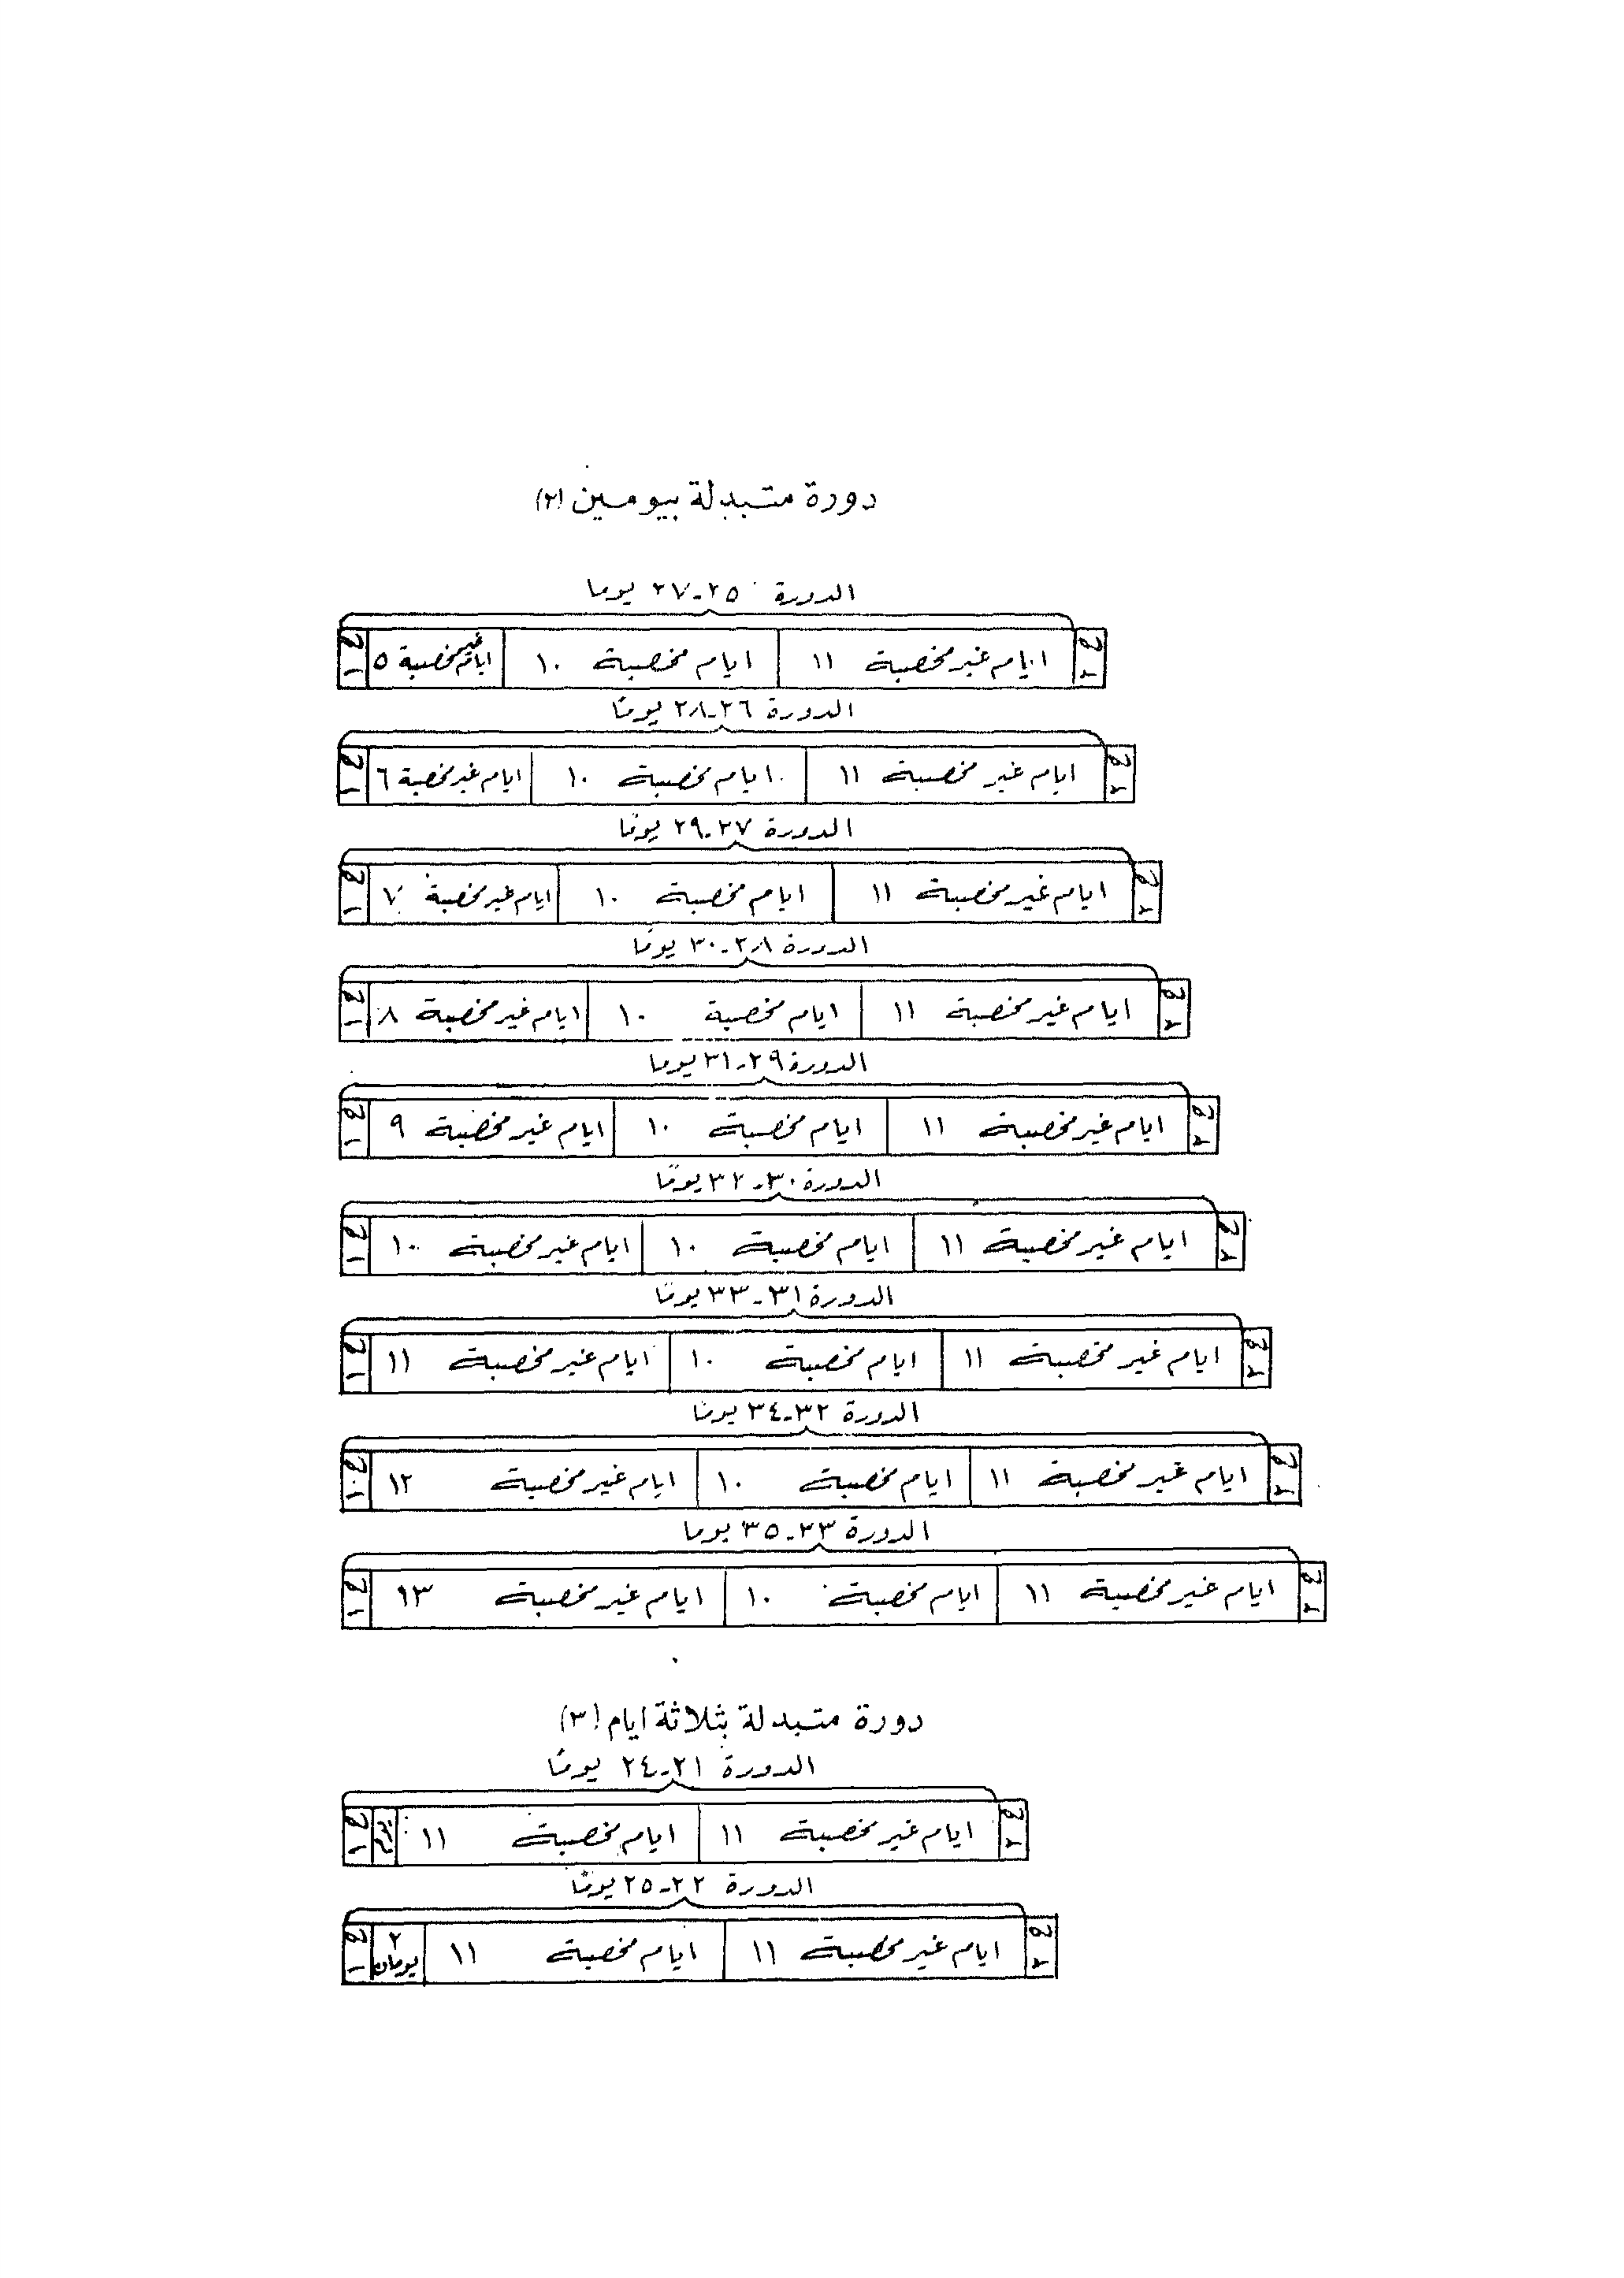 دورة متبدلة بيومين (٢)
الدورة ٢٥-٢٧ يوما
ح ٢ ايام غير مخصبة ١١ ايام مخصبة ١٠ ايام غير مخصبة ٥ ح ١
الدورة ٢٦-٢٨ يومًا
ح ٢ ايام غير مخصبة ١١ ايام مخصبة ١٠ ايام غير مخصبة ٦ ح ١
الدورة ٢٧-٢٩ يومًا
ح ٢ ايام غير مخصبة ١١ ايام مخصبة ١٠ ايام غير مخصبة ٧ ح ١
الدورة ٢٨-٣٠ يومًا
ح ٢ ايام غير مخصبة ١١ ايام مخصبة ١٠ ايام غير مخصبة ٨ ح ١
الدورة ٢٩-٣١ يوما
ح ٢ ايام غير مخصبة ١١ ايام مخصبة ١٠ ايام غير مخصبة ٩ ح ١
الدورة ٣٠-٣٢ يومًا
ح ٢ ايام غير مخصبة ١١ ايام مخصبة ١٠ ايام غير مخصبة ١٠ ح ١
الدورة ٣١-٣٣ يومًا
ح ٢ ايام غير مخصبة ١١ ايام مخصبة ١٠ ايام غير مخصبة ١١ ح ١
الدورة ٣٢-٣٤ يومًا
ح ٢ ايام غير مخصبة ١١ ايام مخصبة ١٠ ايام غير مخصبة ١٢ ح ١
الدورة ٣٣-٣٥ يوما
ح ٢ ايام غير مخصبة ١١ ايام مخصبة ١٠ ايام غير مخصبة ١٣ ح ١
دورة متبدلة بثلاثة ايام (٣)
الدورة ٢١-٢٤ يومًا
ح ٢ ايام غير مخصبة ١١ ايام مخصبة ١١ ح ١
الدورة ٢٢-٢٥ يومًا
ح ٢ ايام غير مخصبة ١١ ايام مخصبة ١١ ٢ يومان ح ١